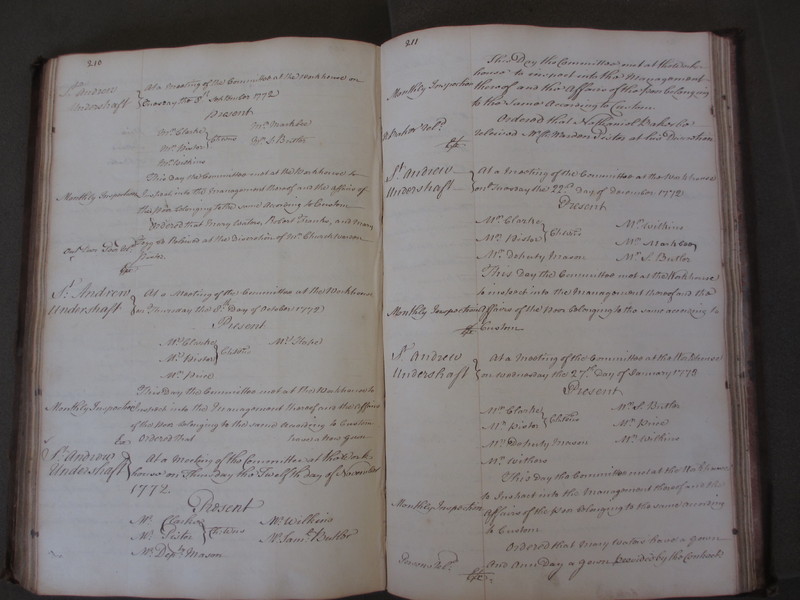 210
St. Andrew
Undershaft
At a Meeting of the Committee at the Workhouse on
Tuesday the 8th September 1772
Present
Mr. Clarke
Mr. Pistor
Mr. Wilkins
Mr. S. Butler
This day the Committee met at the Workhouse to
Monthly Inspection
Inspect into the Management thereof and the affairs of
the Poor belonging to the same According to Custom
Ordered that Mary Waters, Robert and Mary
be Relieved at the discretion of Mr. Churchwarden
Pistor.
St. Andrew
Undershaft
At a Meeting of the Committee at the Workhouse
on Thursday the 8th Day of October 1772
Present
Mr. Clarke
Mr. Pistor
Mr. Price
This day the Committee met at the Workhouse to
Monthly Inspection
Inspect into the Management thereof and the Affairs
of the Poor belonging to the same According to Custom
Ordered that have a Gown
St. Andrew
Undershaft
At a Meeting of the Committee at the Work
house on Thursday the Twelfth day of November
1772
Present
Mr. Clarke
Mr. Pistor
Mr. Depty. Mason
Mr. Wilkins
Mr. Saml. Butler
211
This Day the Committee met at the Work
house to inspect into the Management
Monthly Inspection
thereof and the Affairs of the poor belonging
to the Same According to Custom
Ordered that Nathaniel Baker be
relieved Mr. Ch. Warden Pistor at his Discretion
St. Andrew
Undershaft
At a Meeting of the Committee at the Workhouse
on Tuesday the 22d. day of December 1772
Present
Mr. Clarke
Mr. Pistor
Mr. Deputy Mason
Mr. Wilkins
Mr. S. Butler
This day the Committee met at the Workhouse
to inspect into the Management thereof and the
Monthly Inspection
Affairs of the Poor belonging to the same according to
Custom
St. Andrew
Undershaft
At a Meeting of the Committee at the Workhouse
on Wednesday the 27th. Day of January 1773
Present
Mr. Clarke
Mr. Pistor
Mr. Deputy Mason
Mr. Withers
Mr. S. Butler
Mr. Price
Mr. Wilkins
This day the Committee met at the Workhouse
to Inspect into the Management thereof and the
Monthly Inspection
affairs of the Poor belonging to the same according
to Custom
Ordered that Mary Waters have a gown
and Ann Day a gown provided by the Contract